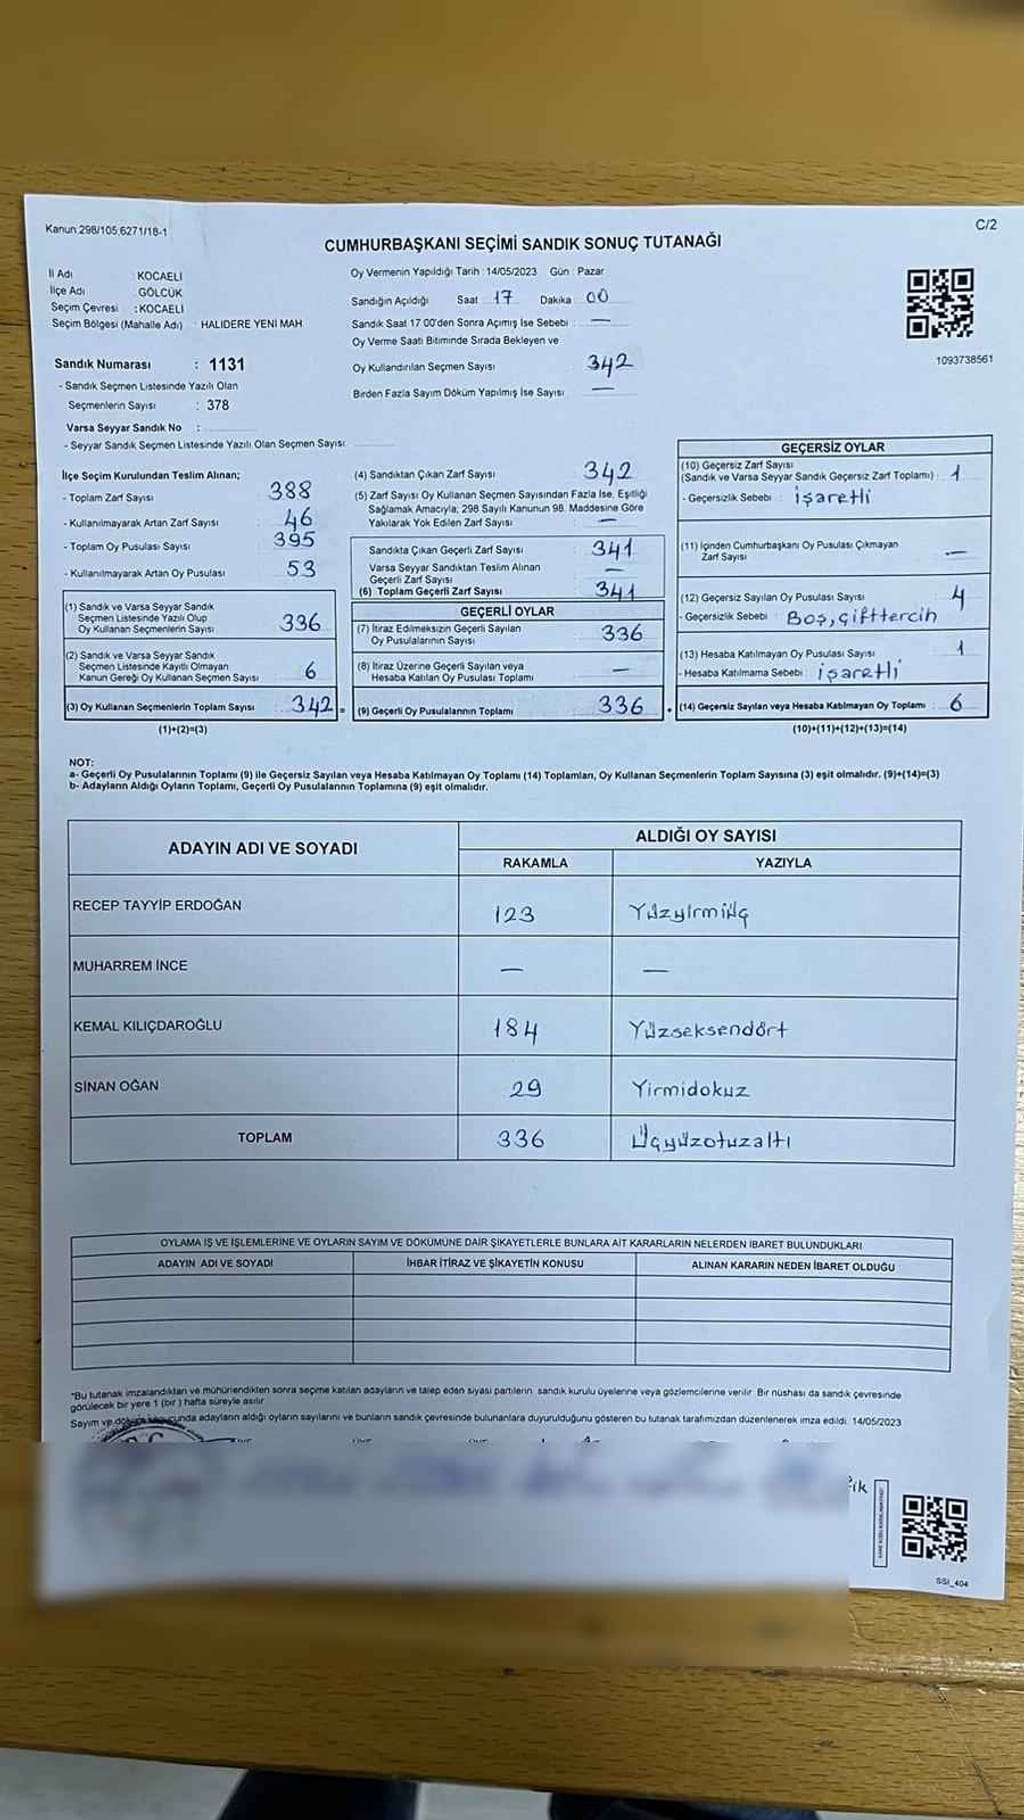 Kanun:298/105,6271/18-1
C/2
CUMHURBAŞKANI SEÇİMİ SANDIK SONUÇ TUTANAĞI
İl Adı : KOCAELİ
İlçe Adı : GÖLCÜK
Seçim Çevresi : KOCAELİ
Seçim Bölgesi (Mahalle Adı) : HALIDERE YENİ MAH
Oy Vermenin Yapıldığı Tarih : 14/05/2023 Gün : Pazar
Sandığın Açıldığı Saat 17 Dakika 00
Sandık Saat 17 00'den Sonra Açımış İse Sebebi : —
Oy Verme Saati Bitiminde Sırada Bekleyen ve
Oy Kullandırılan Seçmen Sayısı 342
Birden Fazla Sayım Döküm Yapılmış İse Sayısı —
1093738561
Sandık Numarası : 1131
- Sandık Seçmen Listesinde Yazılı Olan
Seçmenlerin Sayısı : 378
Varsa Seyyar Sandık No :
- Seyyar Sandık Seçmen Listesinde Yazılı Olan Seçmen Sayısı:
İlçe Seçim Kurulundan Teslim Alınan;
- Toplam Zarf Sayısı 388
- Kullanılmayarak Artan Zarf Sayısı 46
- Toplam Oy Pusulası Sayısı 395
- Kullanılmayarak Artan Oy Pusulası 53
(1) Sandık ve Varsa Seyyar Sandık
Seçmen Listesinde Yazılı Olup
Oy Kullanan Seçmenlerin Sayısı 336
(2) Sandık ve Varsa Seyyar Sandık
Seçmen Listesinde Kayıtlı Olmayan
Kanun Gereği Oy Kullanan Seçmen Sayısı 6
(3) Oy Kullanan Seçmenlerin Toplam Sayısı 342 =
(1)+(2)=(3)
(4) Sandıktan Çıkan Zarf Sayısı 342
(5) Zarf Sayısı Oy Kullanan Seçmen Sayısından Fazla İse, Eşitliği
Sağlamak Amacıyla; 298 Sayılı Kanunun 98. Maddesine Göre
Yakılarak Yok Edilen Zarf Sayısı —
Sandıkta Çıkan Geçerli Zarf Sayısı 341
Varsa Seyyar Sandıktan Teslim Alınan
Geçerli Zarf Sayısı —
(6) Toplam Geçerli Zarf Sayısı 341
GEÇERLİ OYLAR
(7) İtiraz Edilmeksizin Geçerli Sayılan
Oy Pusulalarının Sayısı 336
(8) İtiraz Üzerine Geçerli Sayılan veya
Hesaba Katılan Oy Pusulası Toplamı —
(9) Geçerli Oy Pusulalarının Toplamı 336
GEÇERSİZ OYLAR
(10) Geçersiz Zarf Sayısı
(Sandık ve Varsa Seyyar Sandık Geçersiz Zarf Toplamı) : 1
- Geçersizlik Sebebi : işaretli
(11) İçinden Cumhurbaşkanı Oy Pusulası Çıkmayan
Zarf Sayısı —
(12) Geçersiz Sayılan Oy Pusulası Sayısı 4
- Geçersizlik Sebebi : Boş, çifttercih
(13) Hesaba Katılmayan Oy Pusulası Sayısı 1
- Hesaba Katılmama Sebebi : işaretli
(14) Geçersiz Sayılan veya Hesaba Katılmayan Oy Toplamı : 6
(10)+(11)+(12)+(13)=(14)
NOT:
a- Geçerli Oy Pusulalarının Toplamı (9) ile Geçersiz Sayılan veya Hesaba Katılmayan Oy Toplamı (14) Toplamları, Oy Kullanan Seçmenlerin Toplam Sayısına (3) eşit olmalıdır. (9)+(14)=(3)
b- Adayların Aldığı Oyların Toplamı, Geçerli Oy Pusulalarının Toplamına (9) eşit olmalıdır.
ADAYIN ADI VE SOYADI
ALDIĞI OY SAYISI
RAKAMLA YAZIYLA
RECEP TAYYİP ERDOĞAN 123 Yüzyirmiüç
MUHARREM İNCE — —
KEMAL KILIÇDAROĞLU 184 Yüzseksendört
SİNAN OĞAN 29 Yirmidokuz
TOPLAM 336 Üçyüzotuzaltı
OYLAMA İŞ VE İŞLEMLERİNE VE OYLARIN SAYIM VE DÖKÜMÜNE DAİR ŞİKAYETLERLE BUNLARA AİT KARARLARIN NELERDEN İBARET BULUNDUKLARI
ADAYIN ADI VE SOYADI İHBAR İTİRAZ VE ŞİKAYETİN KONUSU ALINAN KARARIN NEDEN İBARET OLDUĞU
*Bu tutanak imzalandıktan ve mühürlendikten sonra seçime katılan adayların ve talep eden siyasi partilerin sandık kurulu üyelerine veya gözlemcilerine verilir. Bir nüshası da sandık çevresinde
görülecek bir yere 1 (bir) hafta süreyle asılır
Sayım ve adayların aldığı oyların sayılarını ve bunların sandık çevresinde bulunanlara duyurulduğunu gösteren bu tutanak tarafımızdan düzenlenerek imza edildi. 14/05/2023
SSI_404